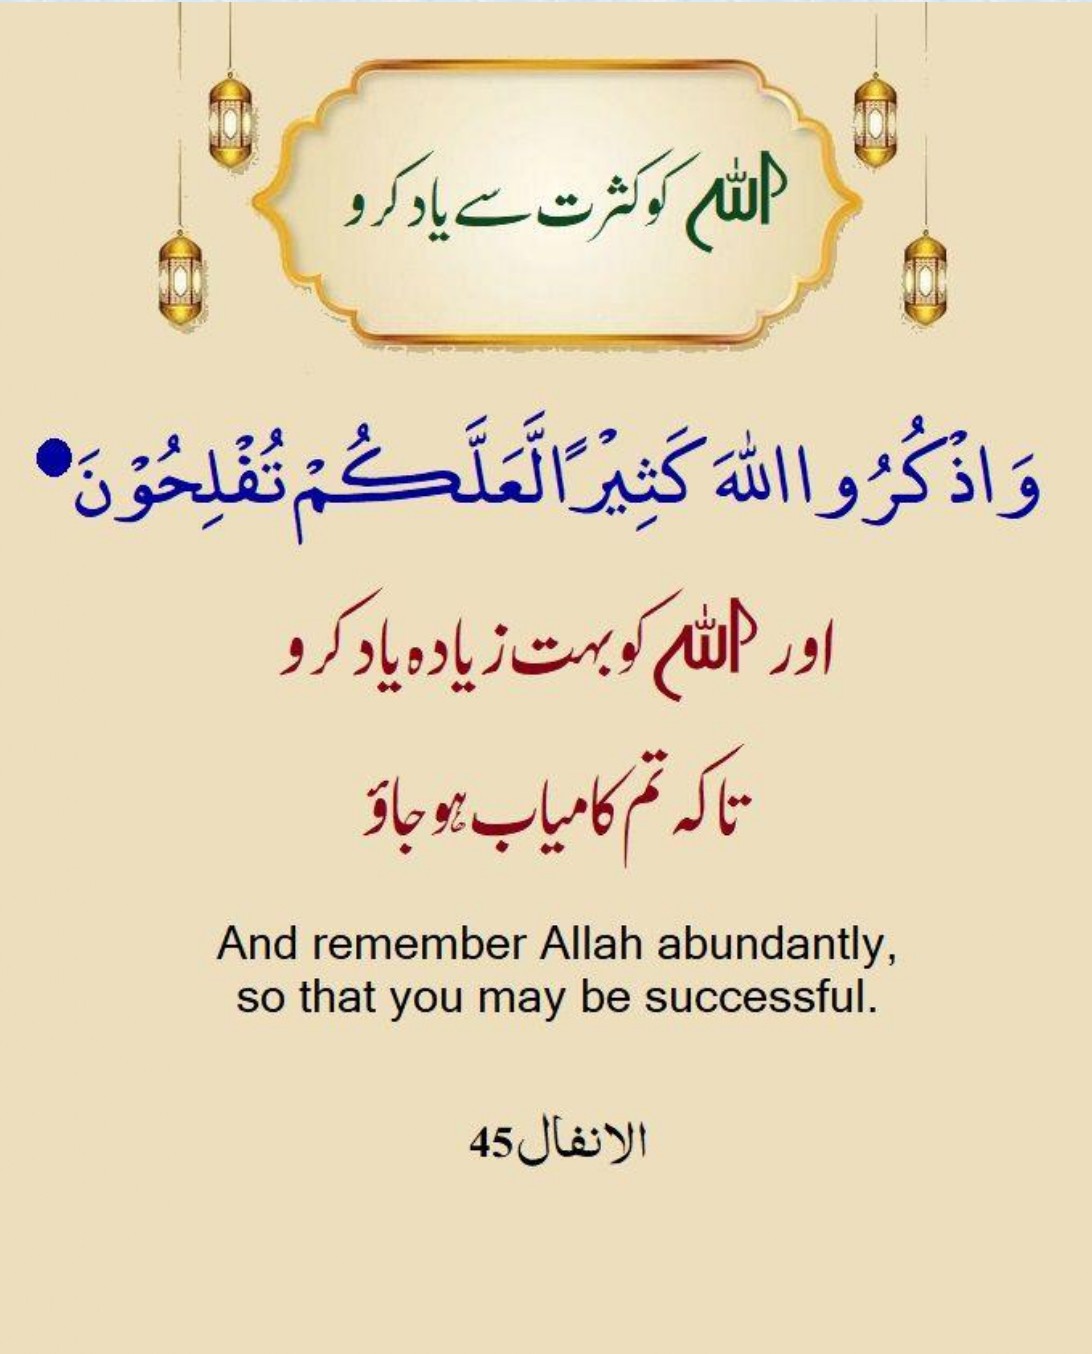 اللہ کو کثرت سے یاد کرو
وَاذْكُرُوا اللّٰهَ كَثِيْرًا لَّعَلَّكُمْ تُفْلِحُوْنَ
اور اللہ کو بہت زیادہ یاد کرو
تاکہ تم کامیاب ہو جاؤ
And remember Allah abundantly,
so that you may be successful.
الانفال45